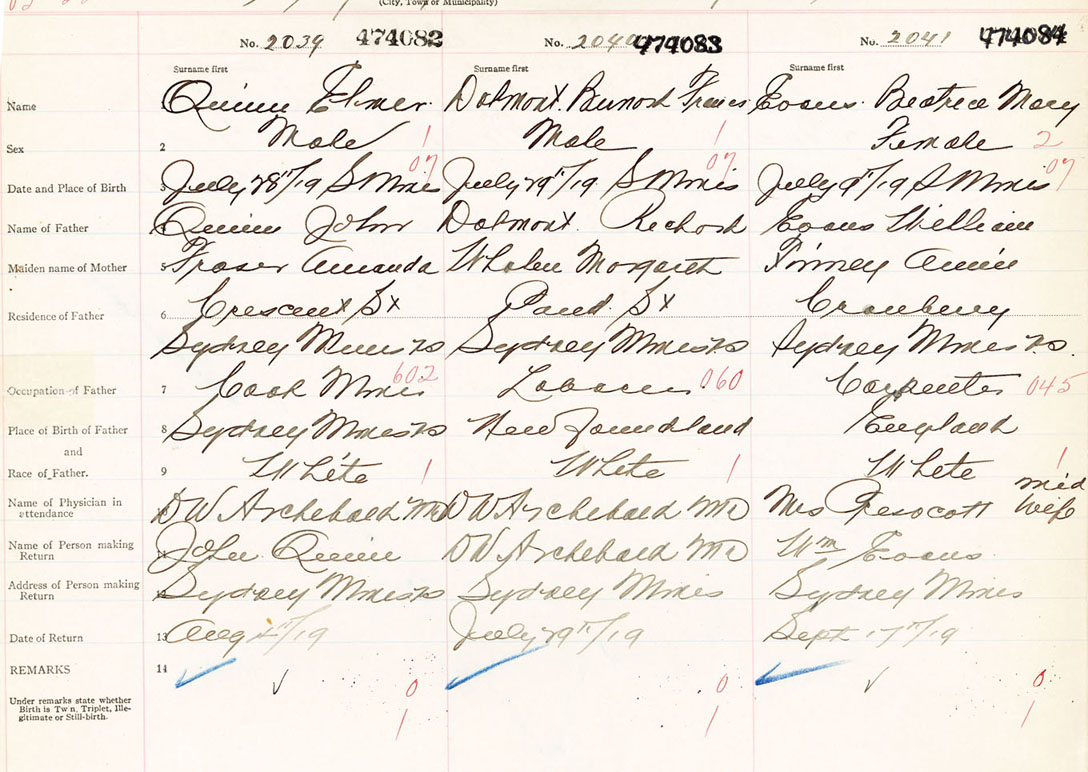 (City, Town or Municipality)
No. 2039 474082 No. 2040 474083 No. 2041 474084
Surname first Surname first Surname first
Name 1 Quinn Elmer. Dolmont. Bernard Francis Evans. Beatrice Mary
Sex 2 Male 1 Male 1 Female 2
07 07 07
Date and Place of Birth 3 July 28"/19 S Mines July 29"/19. S Mines July 9"/19 S Mines
Name of Father 4 Quinn John Dolmont. Richard Evans William
Maiden name of Mother 5 Fraser Amanda Whalen Margaret Finney Annie
Residence of Father 6 Crescent St Pond. St Cranberry
Sydney Mines NS Sydney Mines NS Sydney Mines NS.
Occupation of Father 7 Cook Mines 602 Laborer 060 Carpenter 045
Place of Birth of Father 8 Sydney Mines NS New Foundland England
and
Race of Father. 9 White 1 White 1 White 1
Name of Physician in attendance 10 DW Archibald MD DW Archibald MD Mrs Prescott mid wife
Name of Person making Return 11 John Quinn DW Archibald MD Wm Evans
Address of Person making Return 12 Sydney Mines NS Sydney Mines Sydney Mines
Date of Return 13 Aug "/19 July 29"/19 Sept 17"/19
REMARKS 14
0 0 0
Under remarks state whether
Birth is Twin, Triplet, Ille-
gitimate or Still-birth.
1 1 1